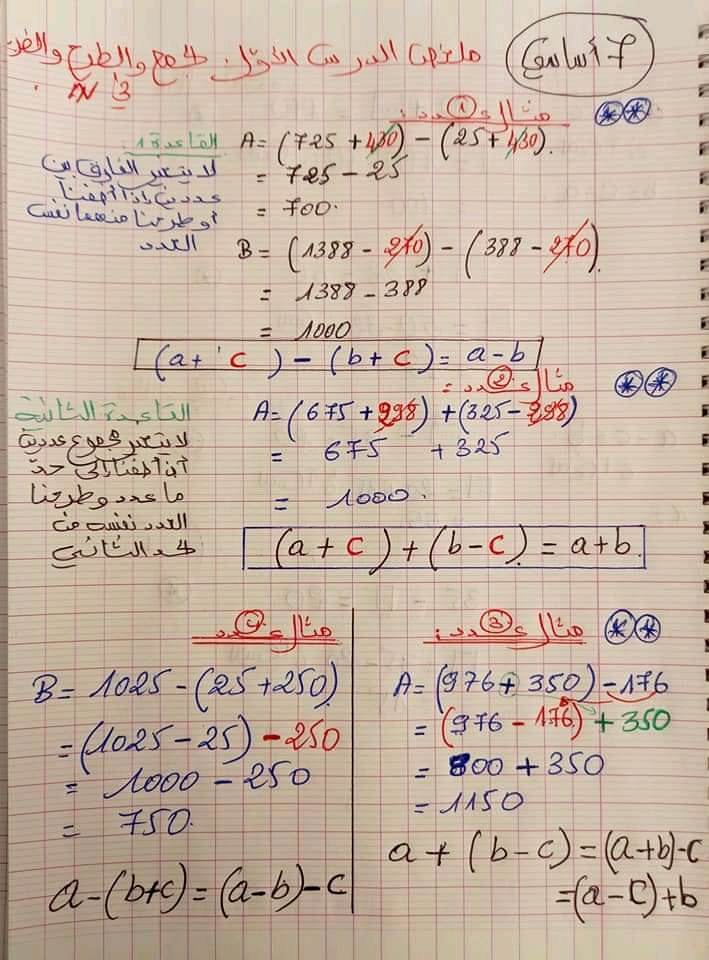 7 أساسي
ملخص الدرس الأول: الجمع والطرح والضرب
في IN
مثال عدد 1:
A = (725 + 430) - (25 + 430).
= 725 - 25
= 700.
القاعدة 1
لا يتغير الفارق بين
عددين إذا أضفنا
أو طرحنا منهما نفس
العدد
B = (1388 - 270) - (388 - 270).
= 1388 - 388
= 1000
(a + c) - (b + c) = a - b
مثال عدد 2:
A = (675 + 298) + (325 - 298)
= 675 + 325
= 1000.
القاعدة الثانية
لا يتغير مجموع عددين
إذا أضفنا إلى حد
ما عدد وطرحنا
العدد نفسه من
الحد الثاني
(a + c) + (b - c) = a + b
مثال عدد 3:
A = (976 + 350) - 176
= (976 - 176) + 350
= 800 + 350
= 1150
a + (b - c) = (a + b) - c
= (a - c) + b
مثال عدد 4
B = 1025 - (25 + 250)
= (1025 - 25) - 250
= 1000 - 250
= 750.
a - (b + c) = (a - b) - c